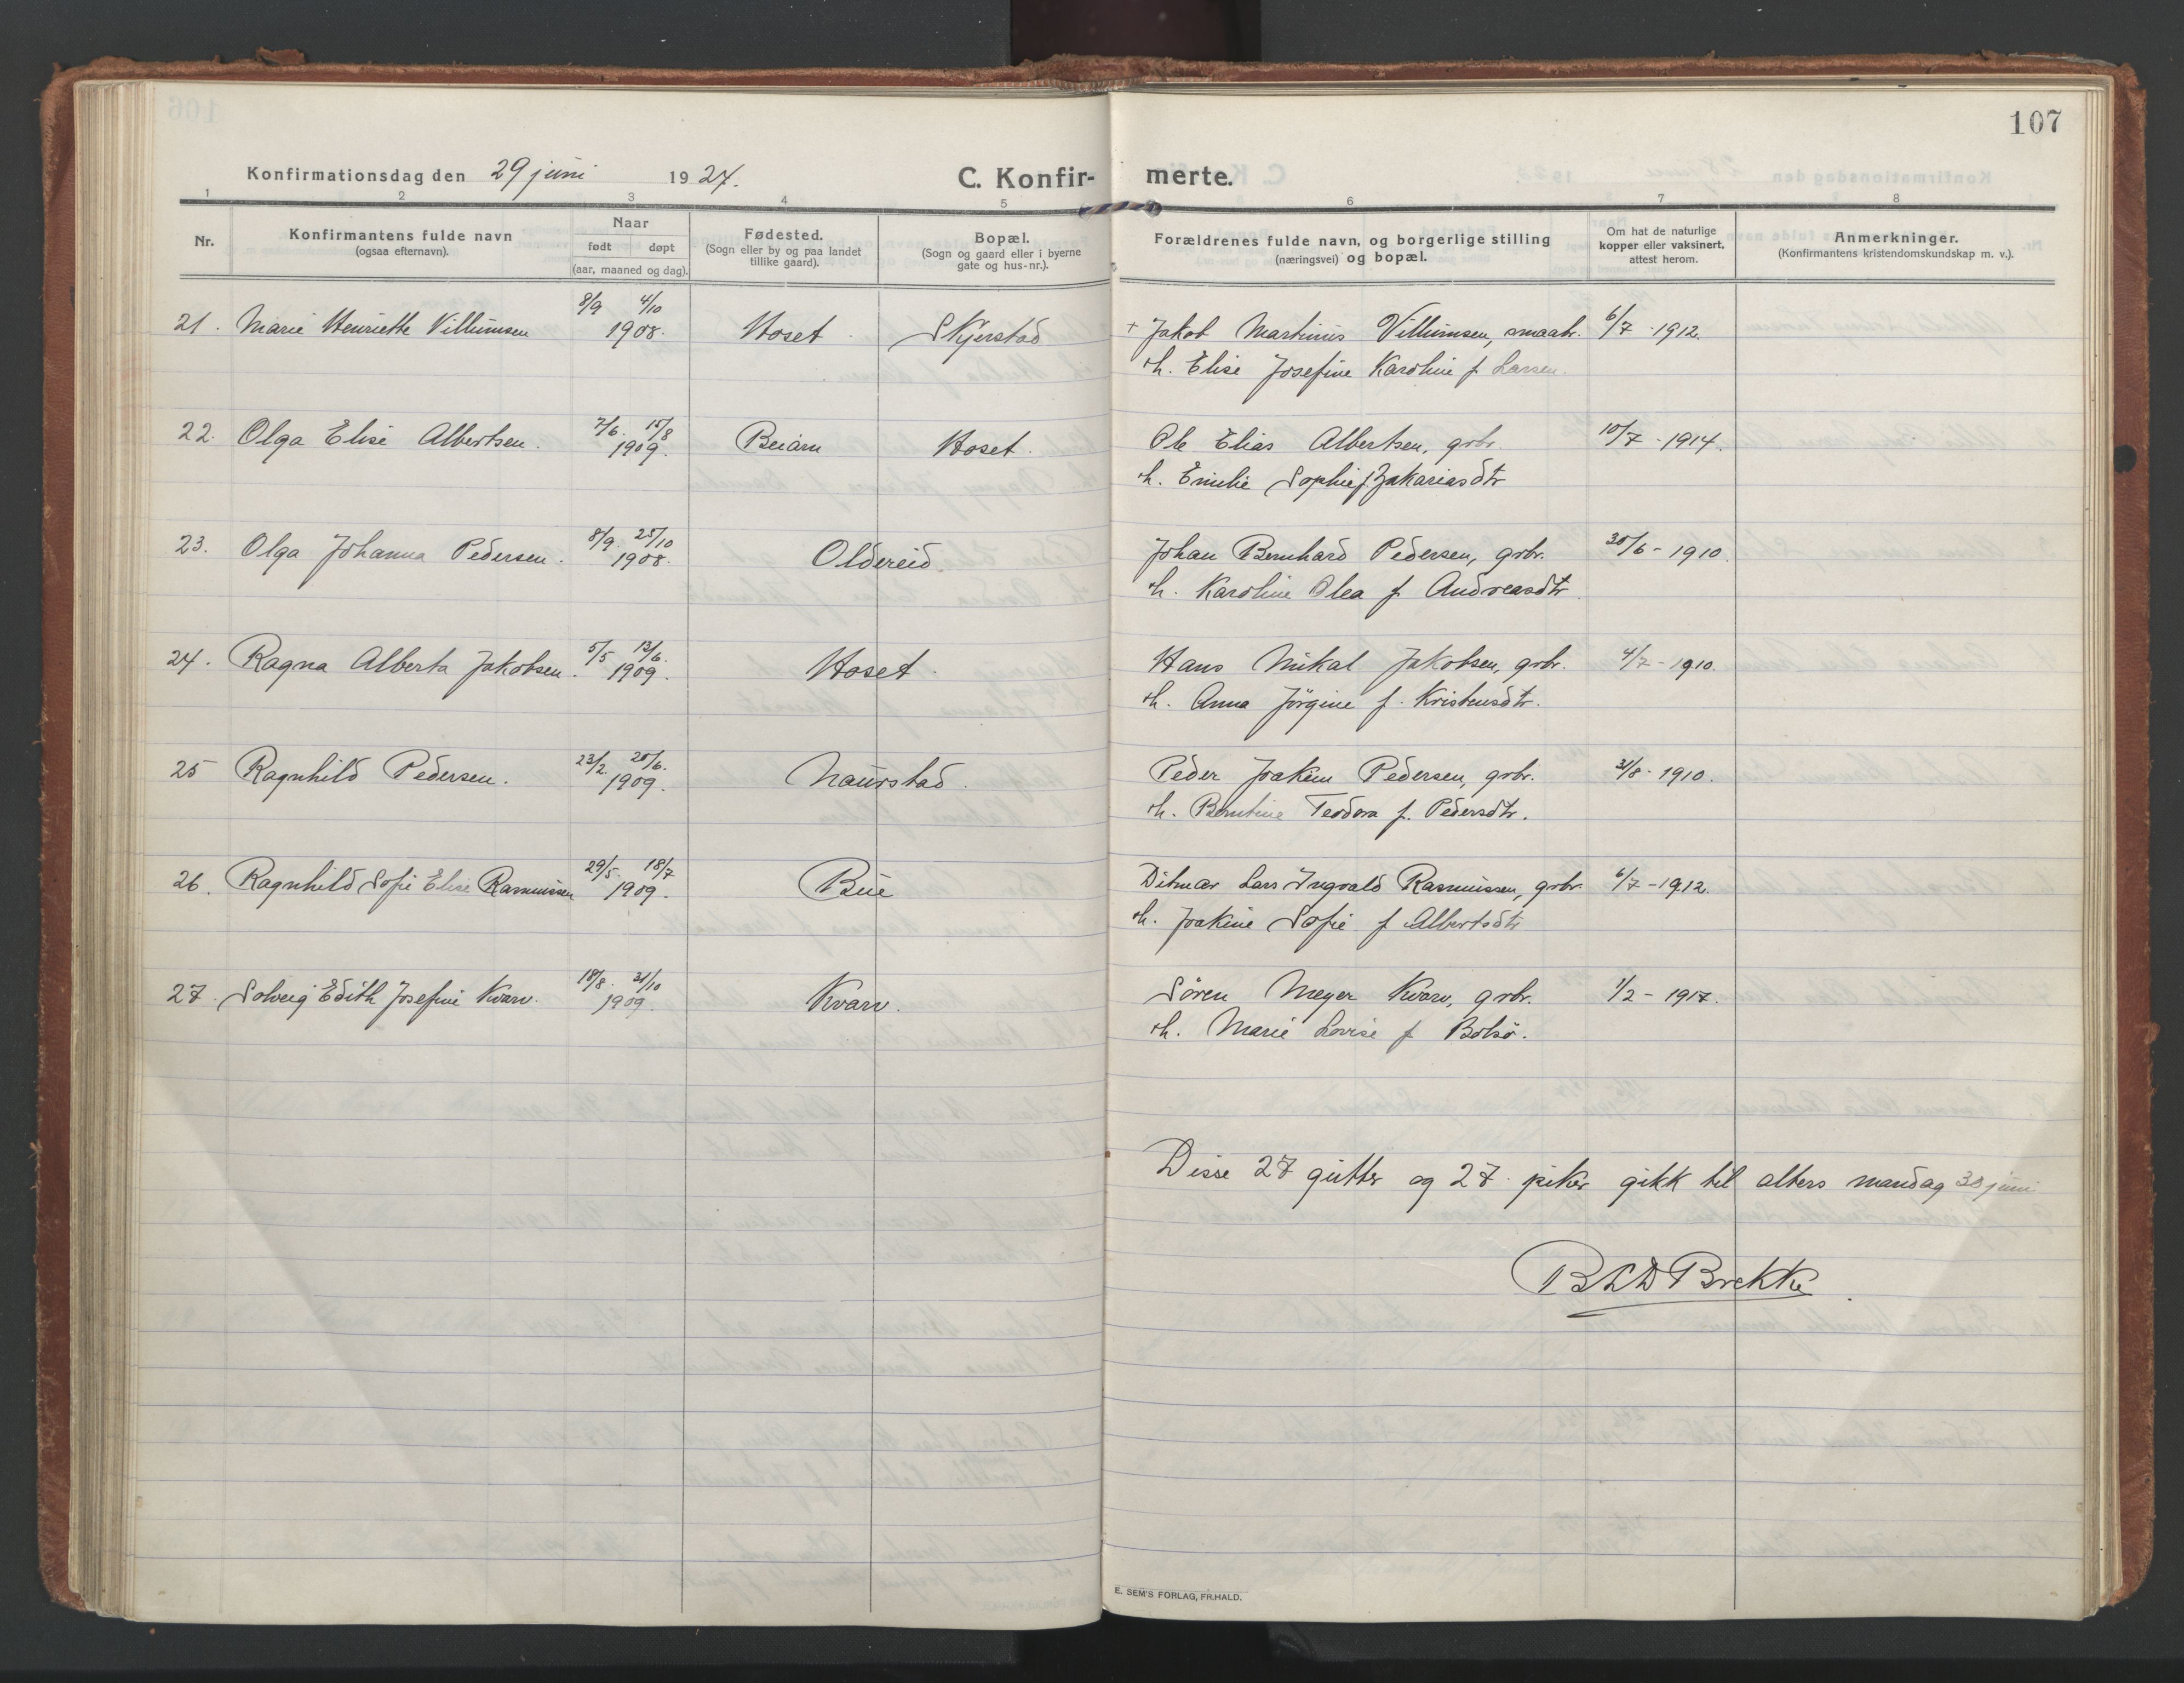 107
Konfirmationsdag den 29 juni 1924. C. Konfir- merte.
1 2 3 4 5 6 7 8
Nr.
Konfirmantens fulde navn
(ogsaa efternavn).
Naar
født døpt
(aar, maaned og dag).
Fødested.
(Sogn eller by og paa landet
tillike gaard).
Bopæl.
(Sogn og gaard eller i byerne
gate og hus-nr.).
Forældrenes fulde navn, og borgerlige stilling
(næringsvei) og bopæl.
Om hat de naturlige
kopper eller vaksinert,
attest herom.
Anmerkninger.
(Konfirmantens kristendomskundskap m. v.).
8/9 4/10
21. Marie Henriette Villumsen 1908. Hoset. Skjerstad + Jakob Martinus Villumsen, smaabr. 6/7 - 1912.
h. Elise Josefine Karoline f. Larsen.
7/6. 15/8
22. Olga Elise Albertsen. 1909. Beiarn Hoset. Ole Elias Albertsen, grbr. 10/7 - 1914.
h. Emilie Sophie f. Zakariasdtr
8/9. 25/10
23. Olga Johanna Pedersen. 1908. Oldereid. Johan Bernhard Pedersen, grbr. 30/6 - 1910.
h. Karoline Olea f. Andreasdtr.
5/5 13/6.
24. Ragna Alberta Jakobsen. 1909. Hoset. Hans Mikal Jakobsen, grbr. 4/7 - 1910.
h. Anna Jörgine f. Kristensdtr.
23/2. 20/6.
25 Ragnhild Pedersen. 1909. Naurstad. Peder Joakim Pedersen, grbr. 31/8 - 1910.
h. Berntine Teodora f. Pedersdtr.
29/5. 18/7
26. Ragnhild Sofie Elise Rasmussen 1909. Bue Ditmar Lars Ingvald Rasmussen, grbr. 6/7 - 1912.
h. Joakine Sofie f. Albertsdtr
18/8. 31/10
27. Solveig Edith Josefine Kvarv. 1909. Kvarv. Sören Meyer Kvarv, grbr. 1/2 - 1917.
h. Marie Lovise f. Bolsö.
Disse 27 gutter og 27 piker gikk til alters mandag 30 juni
Brekke
E. SEM'S FORLAG, FR.HALD.